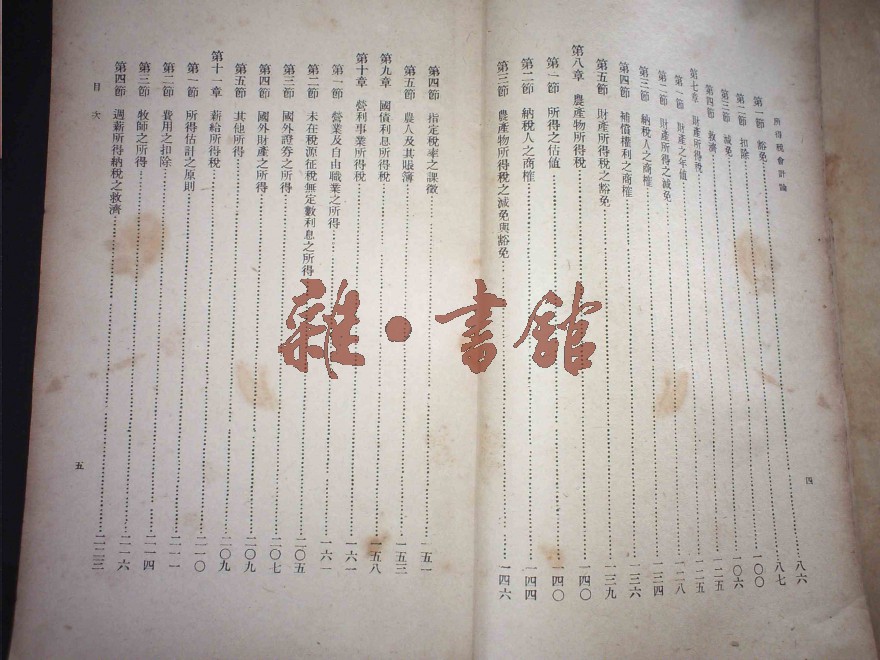 所得稅會計論
第一節 豁免 八六
第二節 扣除 八七
第三節 減免 一〇〇
第四節 救濟 一〇六
第七章 財產所得稅 一一五
第一節 財產之年值 一二五
第二節 財產所得之減免 一二八
第三節 納稅人之商榷 一三四
第四節 補償權利之商榷 一三六
第五節 財產所得稅之豁免 一三九
第八章 農產物所得稅 一四〇
第一節 所得之估値 一四〇
第二節 納稅人之商榷 一四四
第三節 農產物所得稅之減免與豁免 一四六
四
第四節 指定稅率之課徵 一五一
第五節 農人及其賬簿 一五三
第九章 國債利息所得稅 一五八
第十章 營利事業所得稅 一六一
第一節 營業及自由職業之所得 一六一
第二節 未在稅源征稅無定數利息之所得 二〇五
第三節 國外證劵之所得 二〇七
第四節 國外財產之所得 二〇九
第五節 其他所得 二〇九
第十一章 薪給所得稅 二一〇
第一節 所得估計之原則 二一一
第二節 費用之扣除 二一四
第三節 牧師之所得 二一六
第四節 週薪所得納稅之救濟 二二三
目次
五
雜·書館